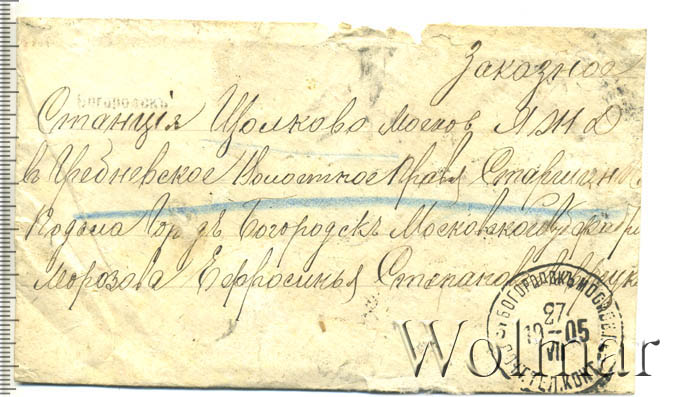 Заказное
Богородскъ
Станція Щолково Москов Я Ж Д
в Гребневское Волостное Правл Старшин
Богородскъ Московской
Морозова Ефросинья Степанова
БОГОРОДСКЪ МОСКОВ.
27
VII
ПОЧТ.ТЕЛ.КОНТ.
Wolmar